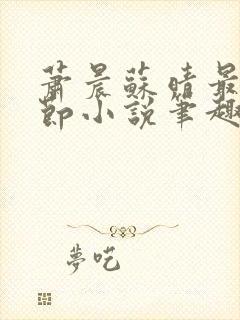 蕭晨蘇晴最
節小說筆趣
夢吃